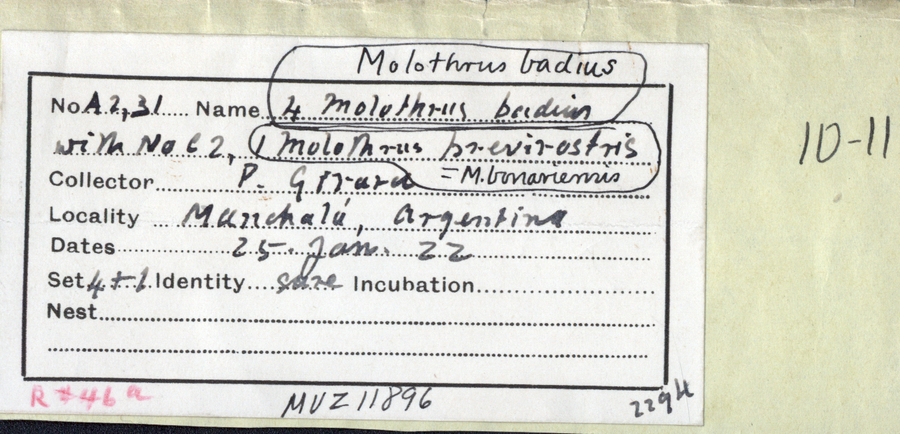 Molothrus badius
No. A2,31 Name 4 Molothrus badius
with No C2, 1 Molothrus brevirostris
Collector P. Girard = M. bonariensis
Locality Manchalá, Argentina
Dates 25. Jan. 22
Set 4+1 Identity sure Incubation
Nest
R#46a MVZ 11896 229H
10-11